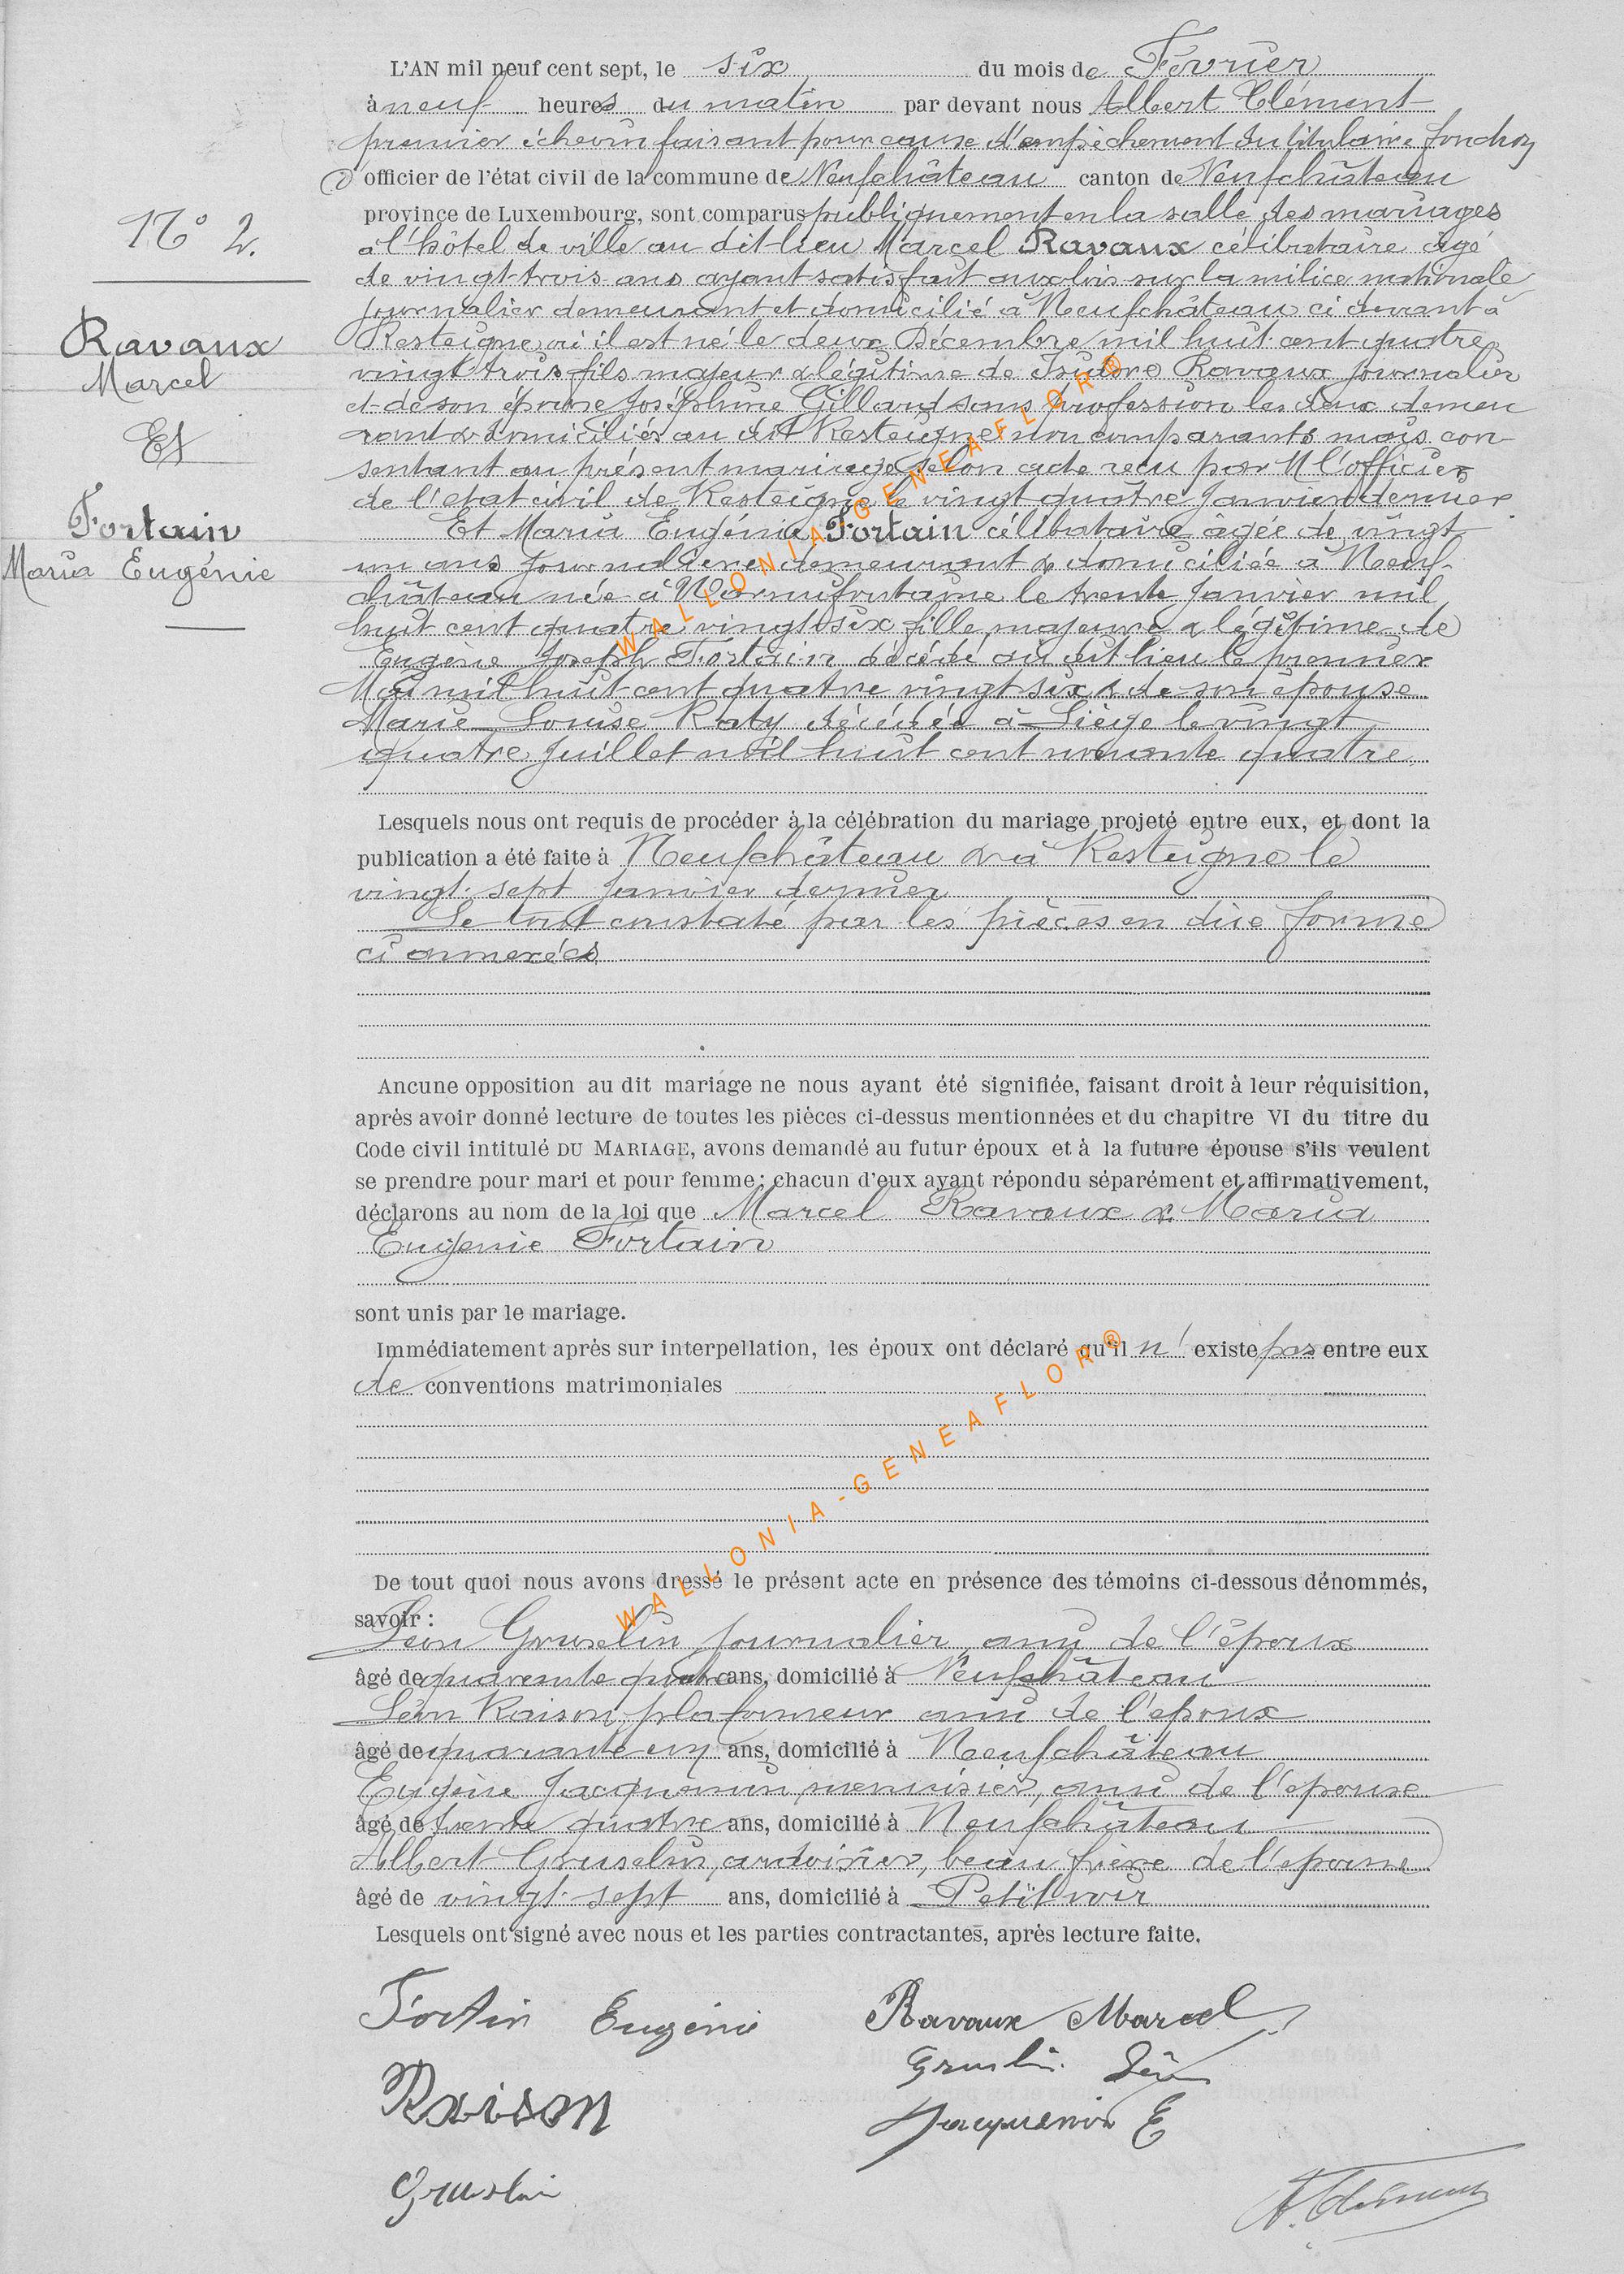 L'AN mil neuf cent sept, le six du mois de Février
à neuf heures du matin par devant nous Albert Clément
premier échevin faisant pour cause d'empêchement du titulaire fonction
d' officier de l'état civil de la commune de Neufchâteau canton de Neufchâteau
province de Luxembourg, sont comparus publiquement en la salle des mariages
N° 2.
à l'hôtel de ville au dit lieu Marcel Ravaux célibataire âgé
de vingt trois ans ayant satisfait aux lois sur la milice nationale
journalier demeurant et domicilié à Neufchâteau ci devant à
Resteigne où il est né le deux Décembre mil huit cent quatre
vingt trois fils majeur & légitime de Isidore Ravaux journalier
et de son épouse Joséphine Gillard sans profession les deux demeu
rant & domiciliés au dit Resteigne non comparants mais con-
sentant au présent mariage selon acte reçu par M l'officier
de l'état civil de Resteigne le vingt quatre Janvier dernier.
Ravaux
Marcel
Et
Fortain
Maria Eugénie
Et Maria Eugénie Fortain célibataire âgée de vingt
un ans journalière demeurant & domiciliée à Neuf-
château née à Warmifontaine le trente Janvier mil
huit cent quatre vingt six fille majeure & légitime de
Eugène Joseph Fortain décédé au dit lieu le premier
Mai mil huit cent quatre vingt six & de son épouse
Marie Louise Roty décédée à Liège le vingt
quatre Juillet mil huit cent nonante quatre
Lesquels nous ont requis de procéder à la célébration du mariage projeté entre eux, et dont la
publication a été faite à Neufchâteau & à Resteigne le
vingt-sept Janvier dernier
Le tout constaté par les pièces en due forme
ci annexées
Aucune opposition au dit mariage ne nous ayant été signifiée, faisant droit à leur réquisition,
après avoir donné lecture de toutes les pièces ci-dessus mentionnées et du chapitre VI du titre du
Code civil intitulé DU MARIAGE, avons demandé au futur époux et à la future épouse s'ils veulent
se prendre pour mari et pour femme; chacun d'eux ayant répondu séparément et affirmativement,
déclarons au nom de la loi que Marcel Ravaux & Maria
Eugénie Fortain
sont unis par le mariage.
Immédiatement après sur interpellation, les époux ont déclaré qu'il n' existe pas entre eux
de conventions matrimoniales
De tout quoi nous avons dressé le présent acte en présence des témoins ci-dessous dénommés,
savoir :
Léon Gruselin journalier, ami de l'époux
âgé de quarante quatre ans, domicilié à Neufchâteau
Léon Raison, plafonneur ami de l'époux
âgé de quarante un ans, domicilié à Neufchâteau
Eugène Jacquemin, menuisier, ami de l'épouse
âgé de trente quatre ans, domicilié à Neufchâteau
Albert Gruselin, ardoisier, beau frère de l'épouse
âgé de vingt-sept ans, domicilié à Petitvoir
Lesquels ont signé avec nous et les parties contractantes, après lecture faite.
Fortin Eugénie Ravaux Marcel
Gruslin Léon
Raison Jacquemin E
Gruslin
A. Clément
WALLONIA-GENEAFLOR®
WALLONIA-GENEAFLOR®